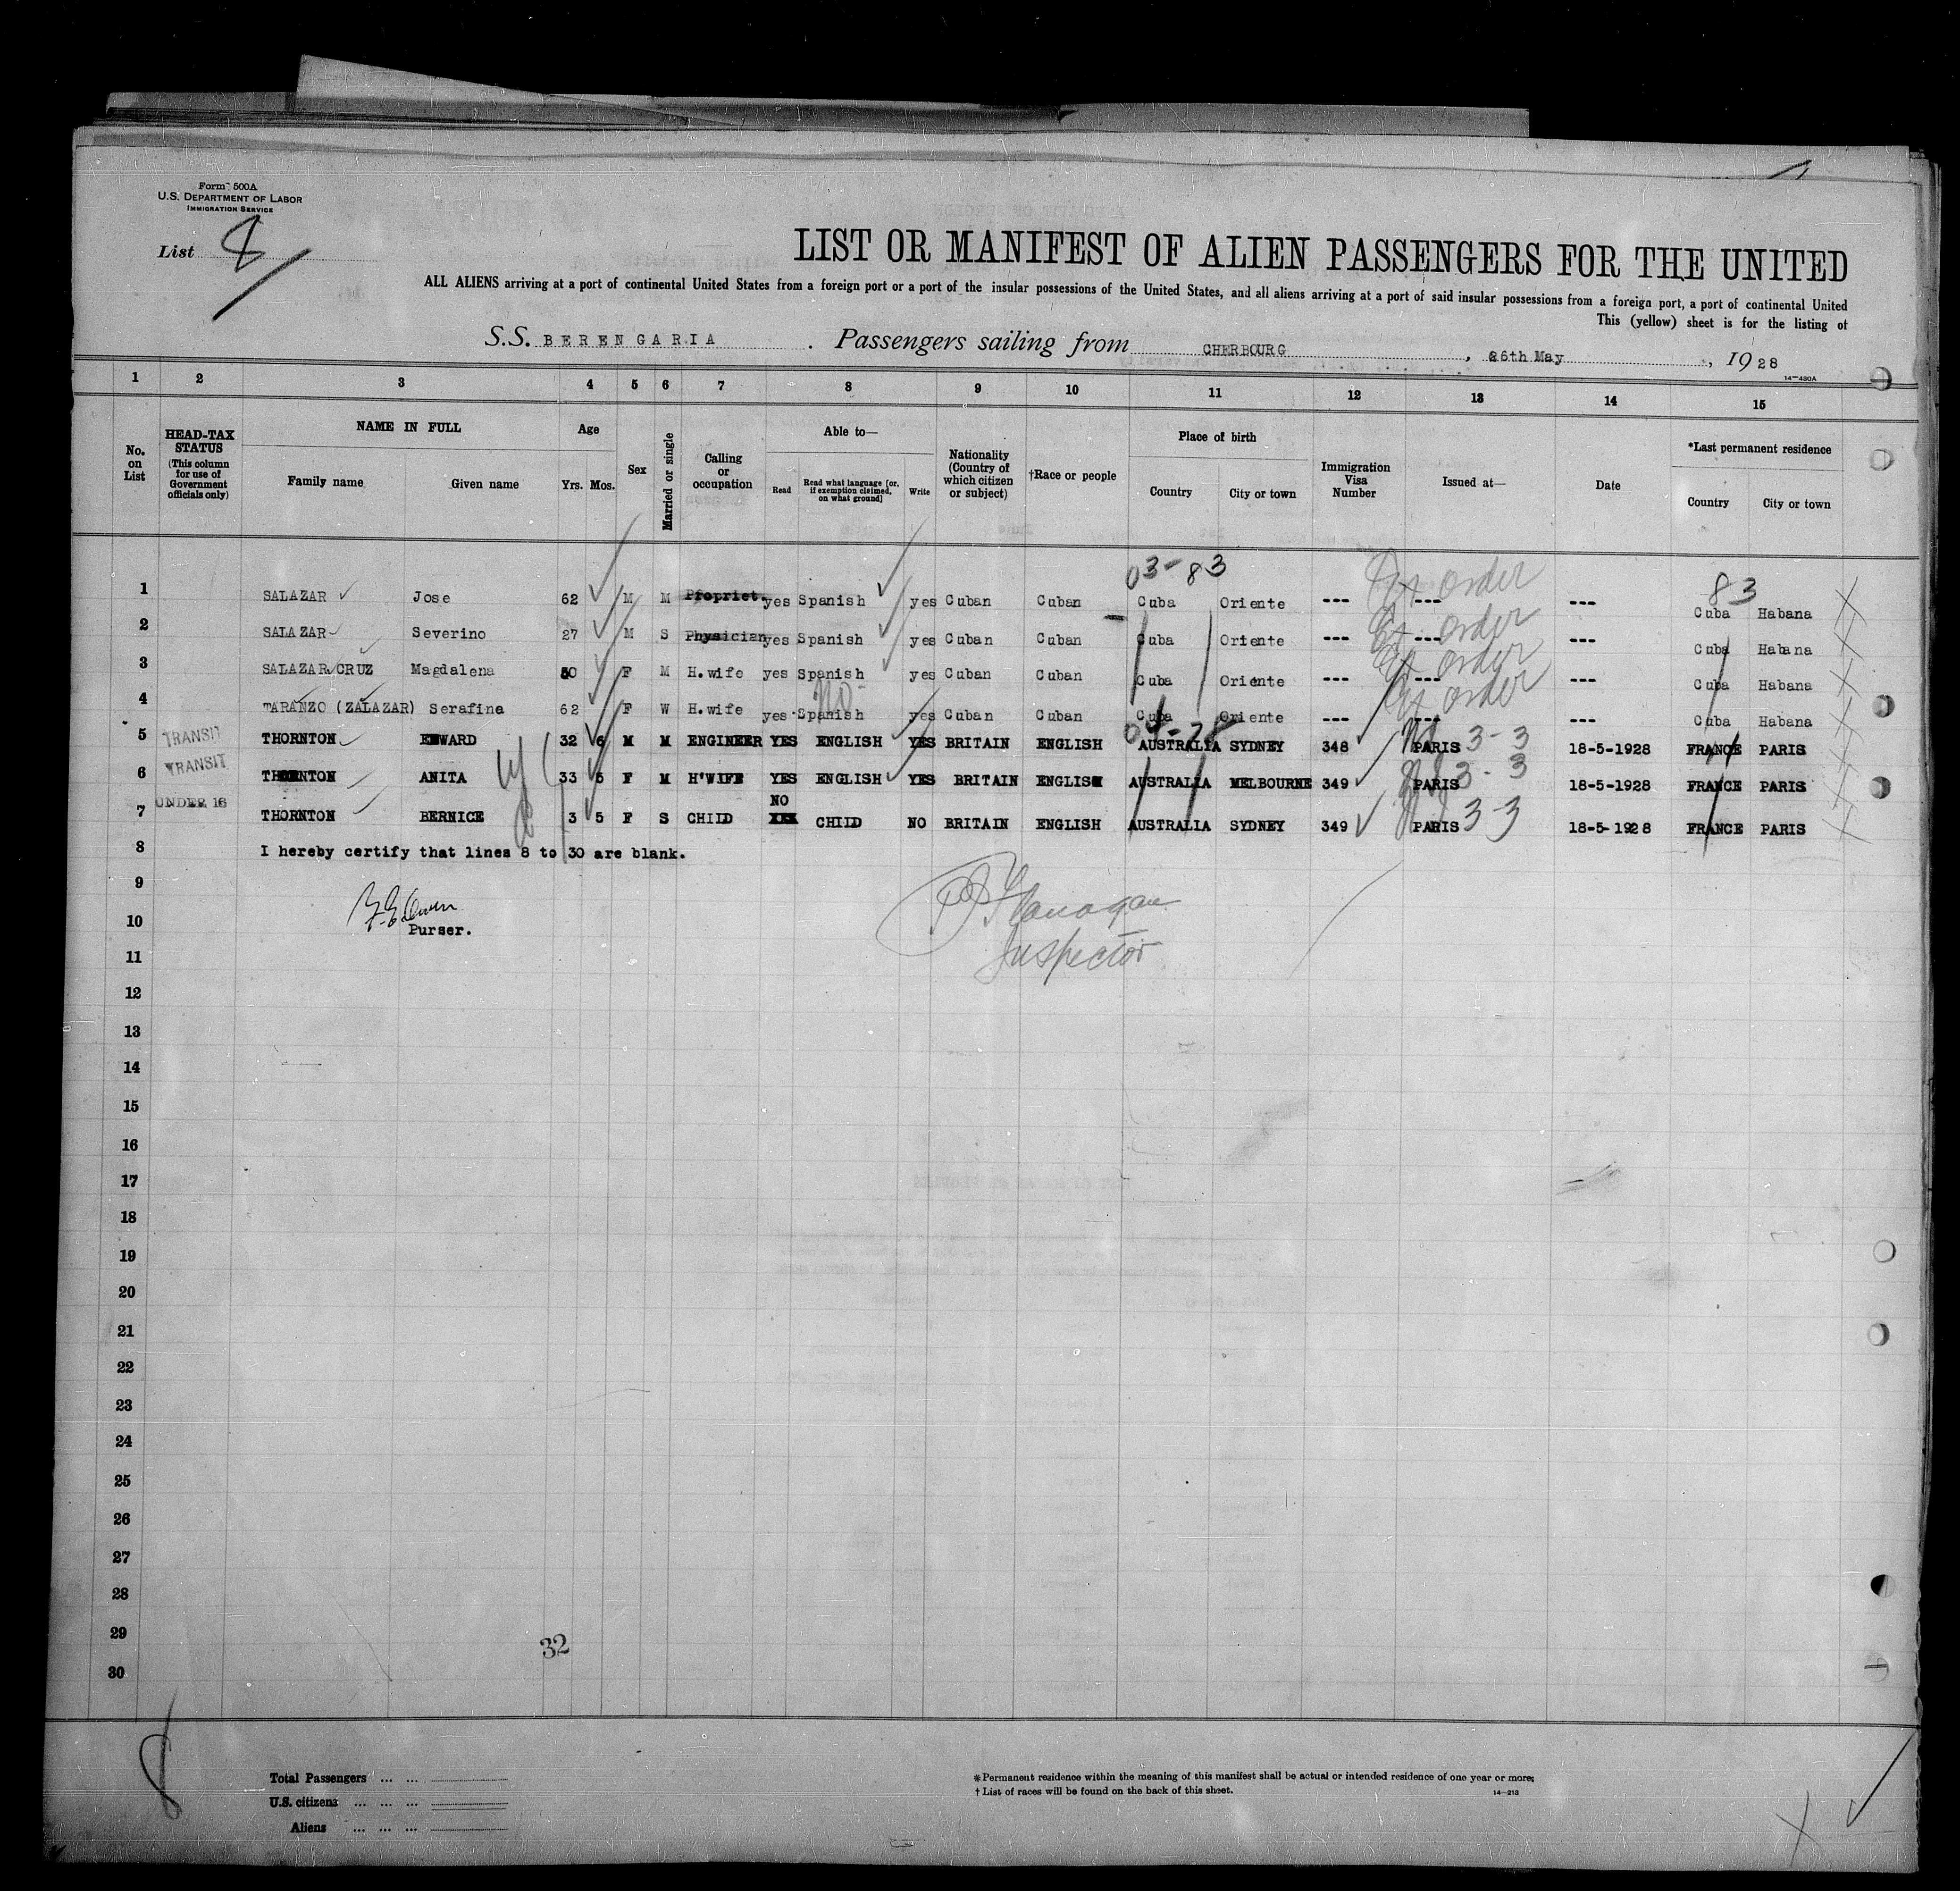 Form 500A
U.S. DEPARTMENT OF LABOR
IMMIGRATION SERVICE
List 8
LIST OR MANIFEST OF ALIEN PASSENGERS FOR THE UNITED
ALL ALIENS arriving at a port of continental United States from a foreign port or a port of the insular possessions of the United States, and all aliens arriving at a port of said insular possessions from a foreign port, a port of continental United
This (yellow) sheet is for the listing of
S.S. BERENGARIA . Passengers sailing from CHERBOURG , 26th May , 1928
14—430A
1 2 3 4 5 6 7 8 9 10 11 12 13 14 15
No. on List
HEAD-TAX STATUS (This column for use of Government officials only)
NAME IN FULL
Family name Given name
Age
Yrs. Mos.
Sex
Married or single
Calling or occupation
Able to—
Read
Read what language [or, if exemption claimed, on what ground]
Write
Nationality (Country of which citizen or subject)
†Race or people
Place of birth
Country City or town
Immigration Visa Number
Issued at—
Date
*Last permanent residence
Country City or town
03-83
83
1 SALAZAR Jose 62 M M Propriet. yes Spanish yes Cuban Cuban Cuba Oriente --- --- Ex order --- Cuba Habana
2 SALAZAR Severino 27 M S Physician yes Spanish yes Cuban Cuban Cuba Oriente --- --- Ex order --- Cuba Habana
3 SALAZAR CRUZ Magdalena 50 F M H.wife yes Spanish yes Cuban Cuban Cuba Oriente --- --- Ex order --- Cuba Habana
No
4 TARANZO (ZALAZAR) Serafina 62 F W H.wife yes Spanish yes Cuban Cuban Cuba Oriente --- --- Ex order --- Cuba Habana
04-28
5 TRANSIT THORNTON EDWARD 32 6 M M ENGINEER YES ENGLISH YES BRITAIN ENGLISH AUSTRALIA SYDNEY 348 PARIS 3-3 18-5-1928 FRANCE PARIS
6 TRANSIT THORNTON ANITA 33 5 F M H'WIFE YES ENGLISH YES BRITAIN ENGLISH AUSTRALIA MELBOURNE 349 PARIS 3-3 18-5-1928 FRANCE PARIS
NO
7 UNDER 16 THORNTON BERNICE 3 5 F S CHILD XXX CHILD NO BRITAIN ENGLISH AUSTRALIA SYDNEY 349 PARIS 3-3 18-5-1928 FRANCE PARIS
8 I hereby certify that lines 8 to 30 are blank.
9
10 Purser.
Flanagan
Inspector
11
12
13
14
15
16
17
18
19
20
21
22
23
24
25
26
27
28
29
32
30
8
Total Passengers ... ...
U.S. citizens ... ... ...
Aliens ... ... ...
*Permanent residence within the meaning of this manifest shall be actual or intended residence of one year or more.
†List of races will be found on the back of this sheet.
14—213